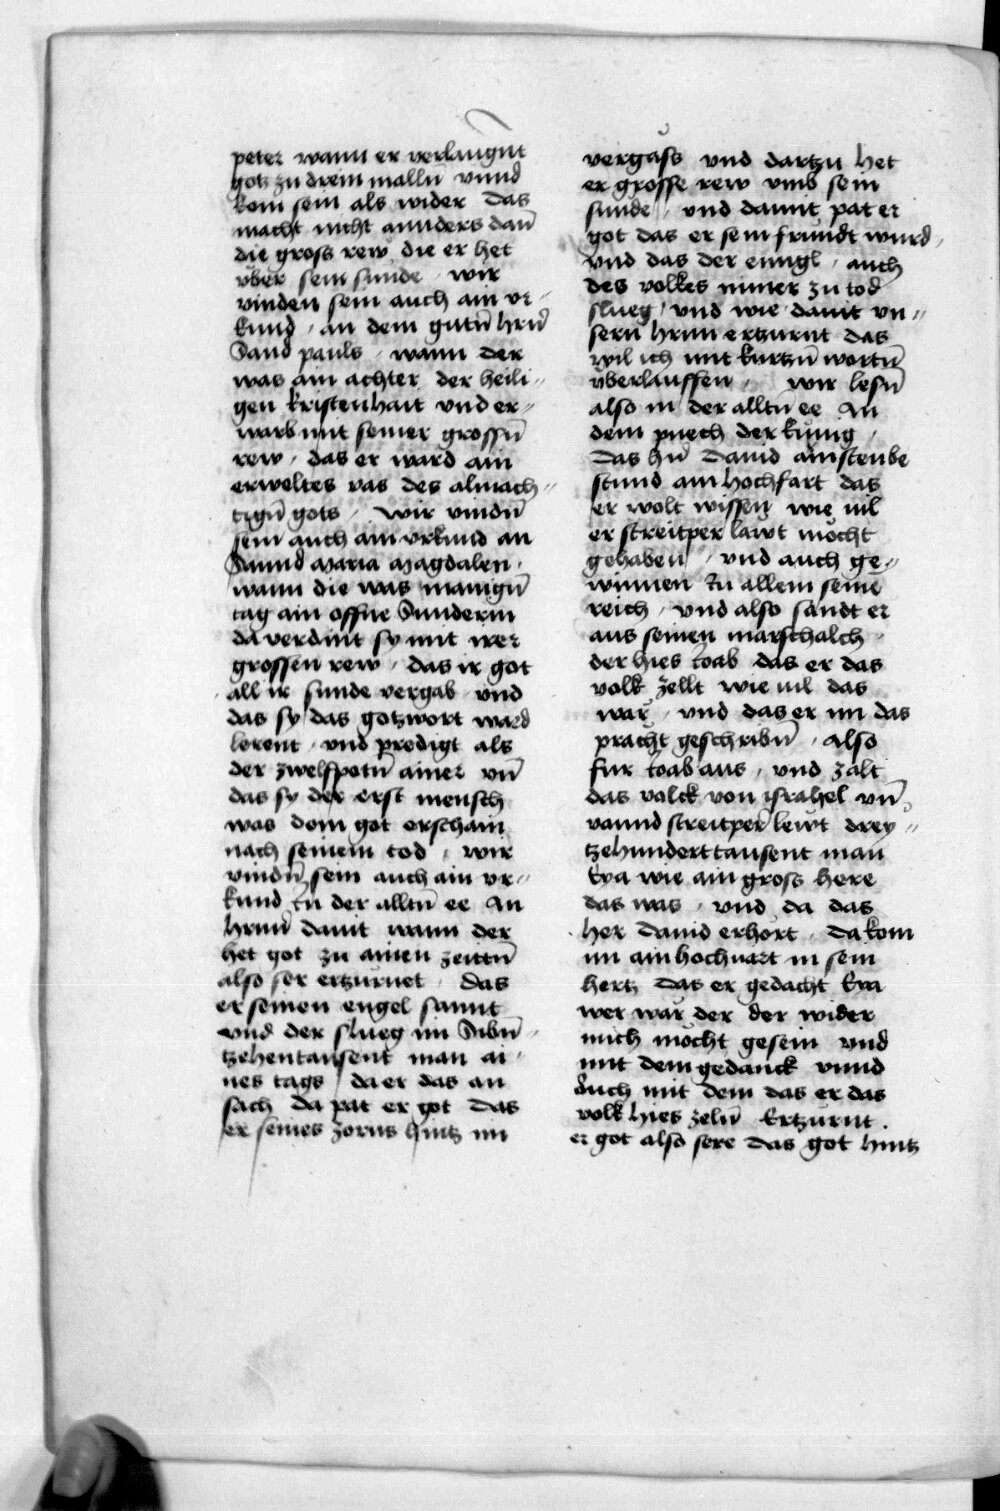 peter wann er verlaugnt
gots zu drein mallñ vnnd
kom sein als wider das
macht nicht annders dañ
die gross rew die er het
vber sein sunde wir
vinden sein auch ain vr〃
kund an dem gutñ hrñ
Sand pauls wann der
was ain achter der heili〃
gen kristenhait vnd er〃
warb mit seiner grossñ
rew das er ward ain
erweltes vas des almach〃
tigñ gots wir vindñ
sein auch ain vrkund an
Sannd Maria Magdalen
wann die was manigñ
tag ain offne Sunderin
da verdint sy mit irer
grossen rew das ir got
all ir sunde vergab vnd
das sy das gotzwort ward
lerent vnd predigt als
der zwelfpotñ ainer vñ
das sy der erst mensch
was dem got erschain
nach seinem tod wir
vindñ sein auch ain vr〃
kund In der alltñ ee An
hrnñ dauit wann der
het got zu ainen zeittñ
also ser ertzurnet das
er seinen engel sannt
vnd der slueg im Sibñ〃
tzehentausent man ai〃
nes tags da er das an
sach da pat er got das
er seines zorns hintz im
vergass vnd dartzu het
er grosse rew vmb sein
sunde vnd damit pat er
got das er sein frundt wurd
vnd das der enngl auch
des volkes nimer zu tod
slueg vnd wie dauit vn〃
sern hrnn ertzurnt das
wil ich mit kurtzñ wortñ
vberlauffen wir lesñ
also in der alltñ ee An
dem puech der kunig
das hñ dauid
stund ain hochfart das
er wolt wissen wie uil
er streitper läwt möcht
gehaben vnd auch ge〃
winnen In allem seine
reich vnd also sandt er
aus seinen marschalch
der hies Joab das er das
volk zellt wie uil das
wär vnd das er im das
pracht geschribñ also
fur Joab aus vnd zalt
das volck von israhel vñ
vannd streitper lewt drey〃
tzehunderttausent man
Eya wie ain gross here
das was vnd da das
her dauid erhort da kom
im ain hochuart in sein
hertz das er gedacht Eya
wer wär der der wider
mich möcht gesein vnd
mit dem gedanck vnnd
auch mit dem das er das
volk hies zelñ Ertzurnt
er got also sere das got hintz